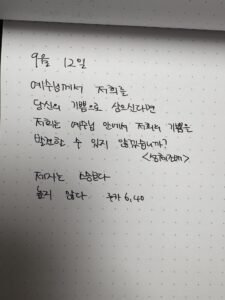 9월 12일
예수님께서 저희를
당신의 기쁨으로 삼으신다면
저희는 예수님 안에서 저희의 기쁨을
발견할 수 있지 않겠습니까?
제자는 스승보다
높지 않다 루카 6,40